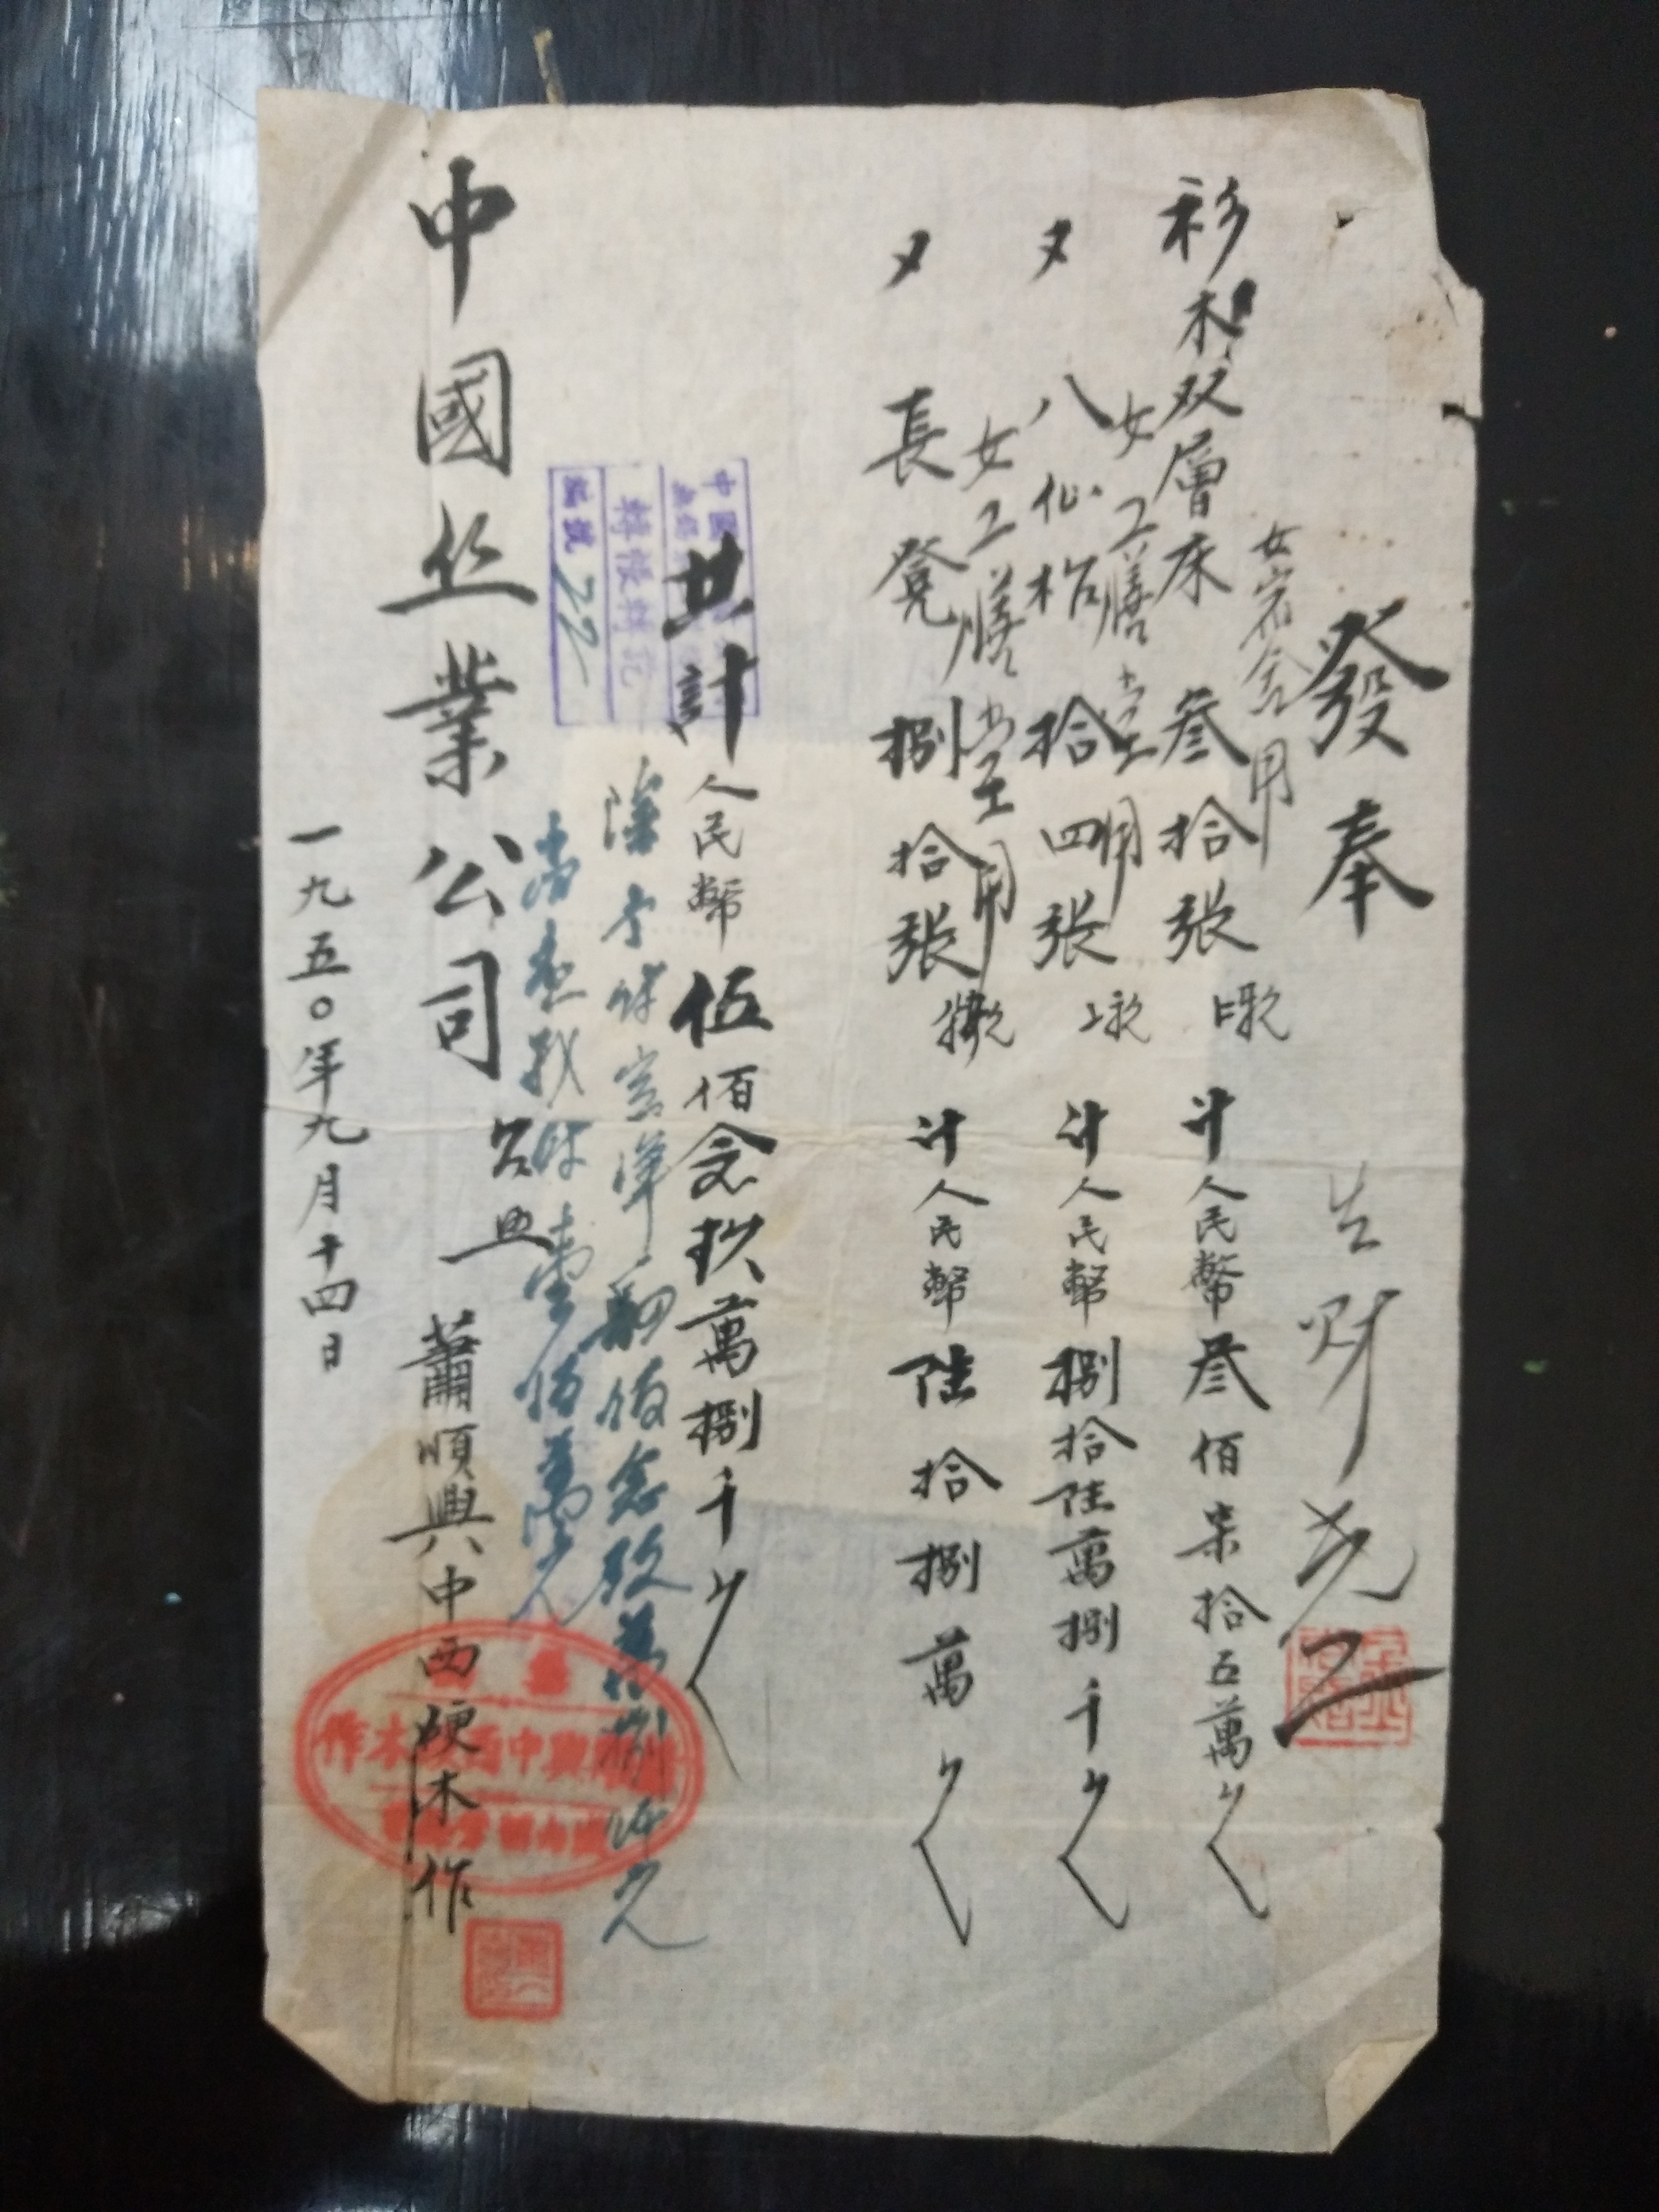 發奉
生財
女宿舍用
杉木双層床 叁拾張 計人民幣叁佰柒拾五萬
女工膳堂用
又 八仙枱 拾四張 計人民幣捌拾陸萬捌千
女工膳堂用
又 長凳 捌拾張 計人民幣陸拾捌萬
共計人民幣伍佰念玖萬捌千
除令伴實洋肆佰念玖萬捌仟元
壹佰萬元
編號 22
中國丝業公司 台照 蕭順興中西硬木作
一九五〇年九月十四日